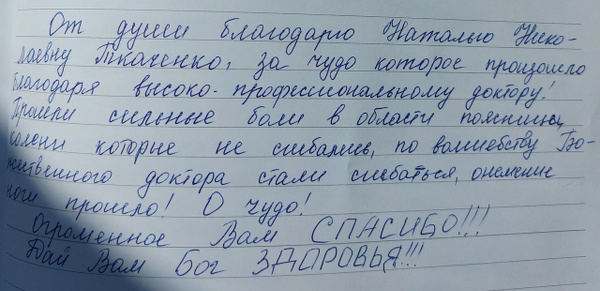 От души благодарю Наталью Нико-
лаевну Ткаченко, за чудо которое произошло
благодаря высоко-профессиональному доктору!
Прошли сильные боли в области поясницы,
колени которые не сгибались, по волшебству Бо-
жественного доктора стали сгибаться, онемение
ноги прошло! О чудо!
Огроменное Вам СПАСИБО!!!
Дай Вам Бог ЗДОРОВЬЯ!!!